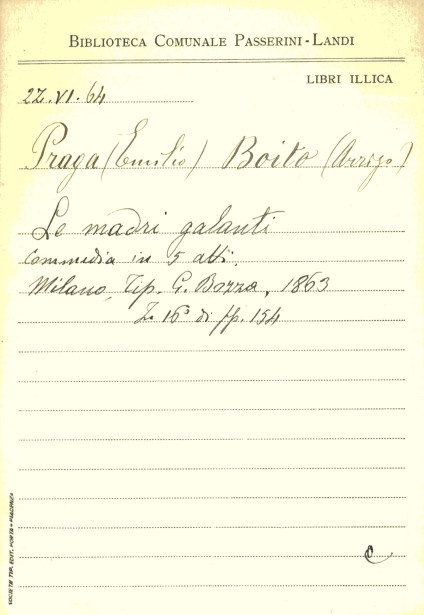 BIBLIOTECA COMUNALE PASSERINI-LANDI
LIBRI ILLICA
22.VI.64
Praga (Emilio) Boito (Arrigo)
Le madri galanti
Commedia in 5 atti.
Milano, Tip. G. Bozza, 1863
In 16° di pp. 154
SOCIETÀ TIP. EDIT. PORTA - PIACENZA